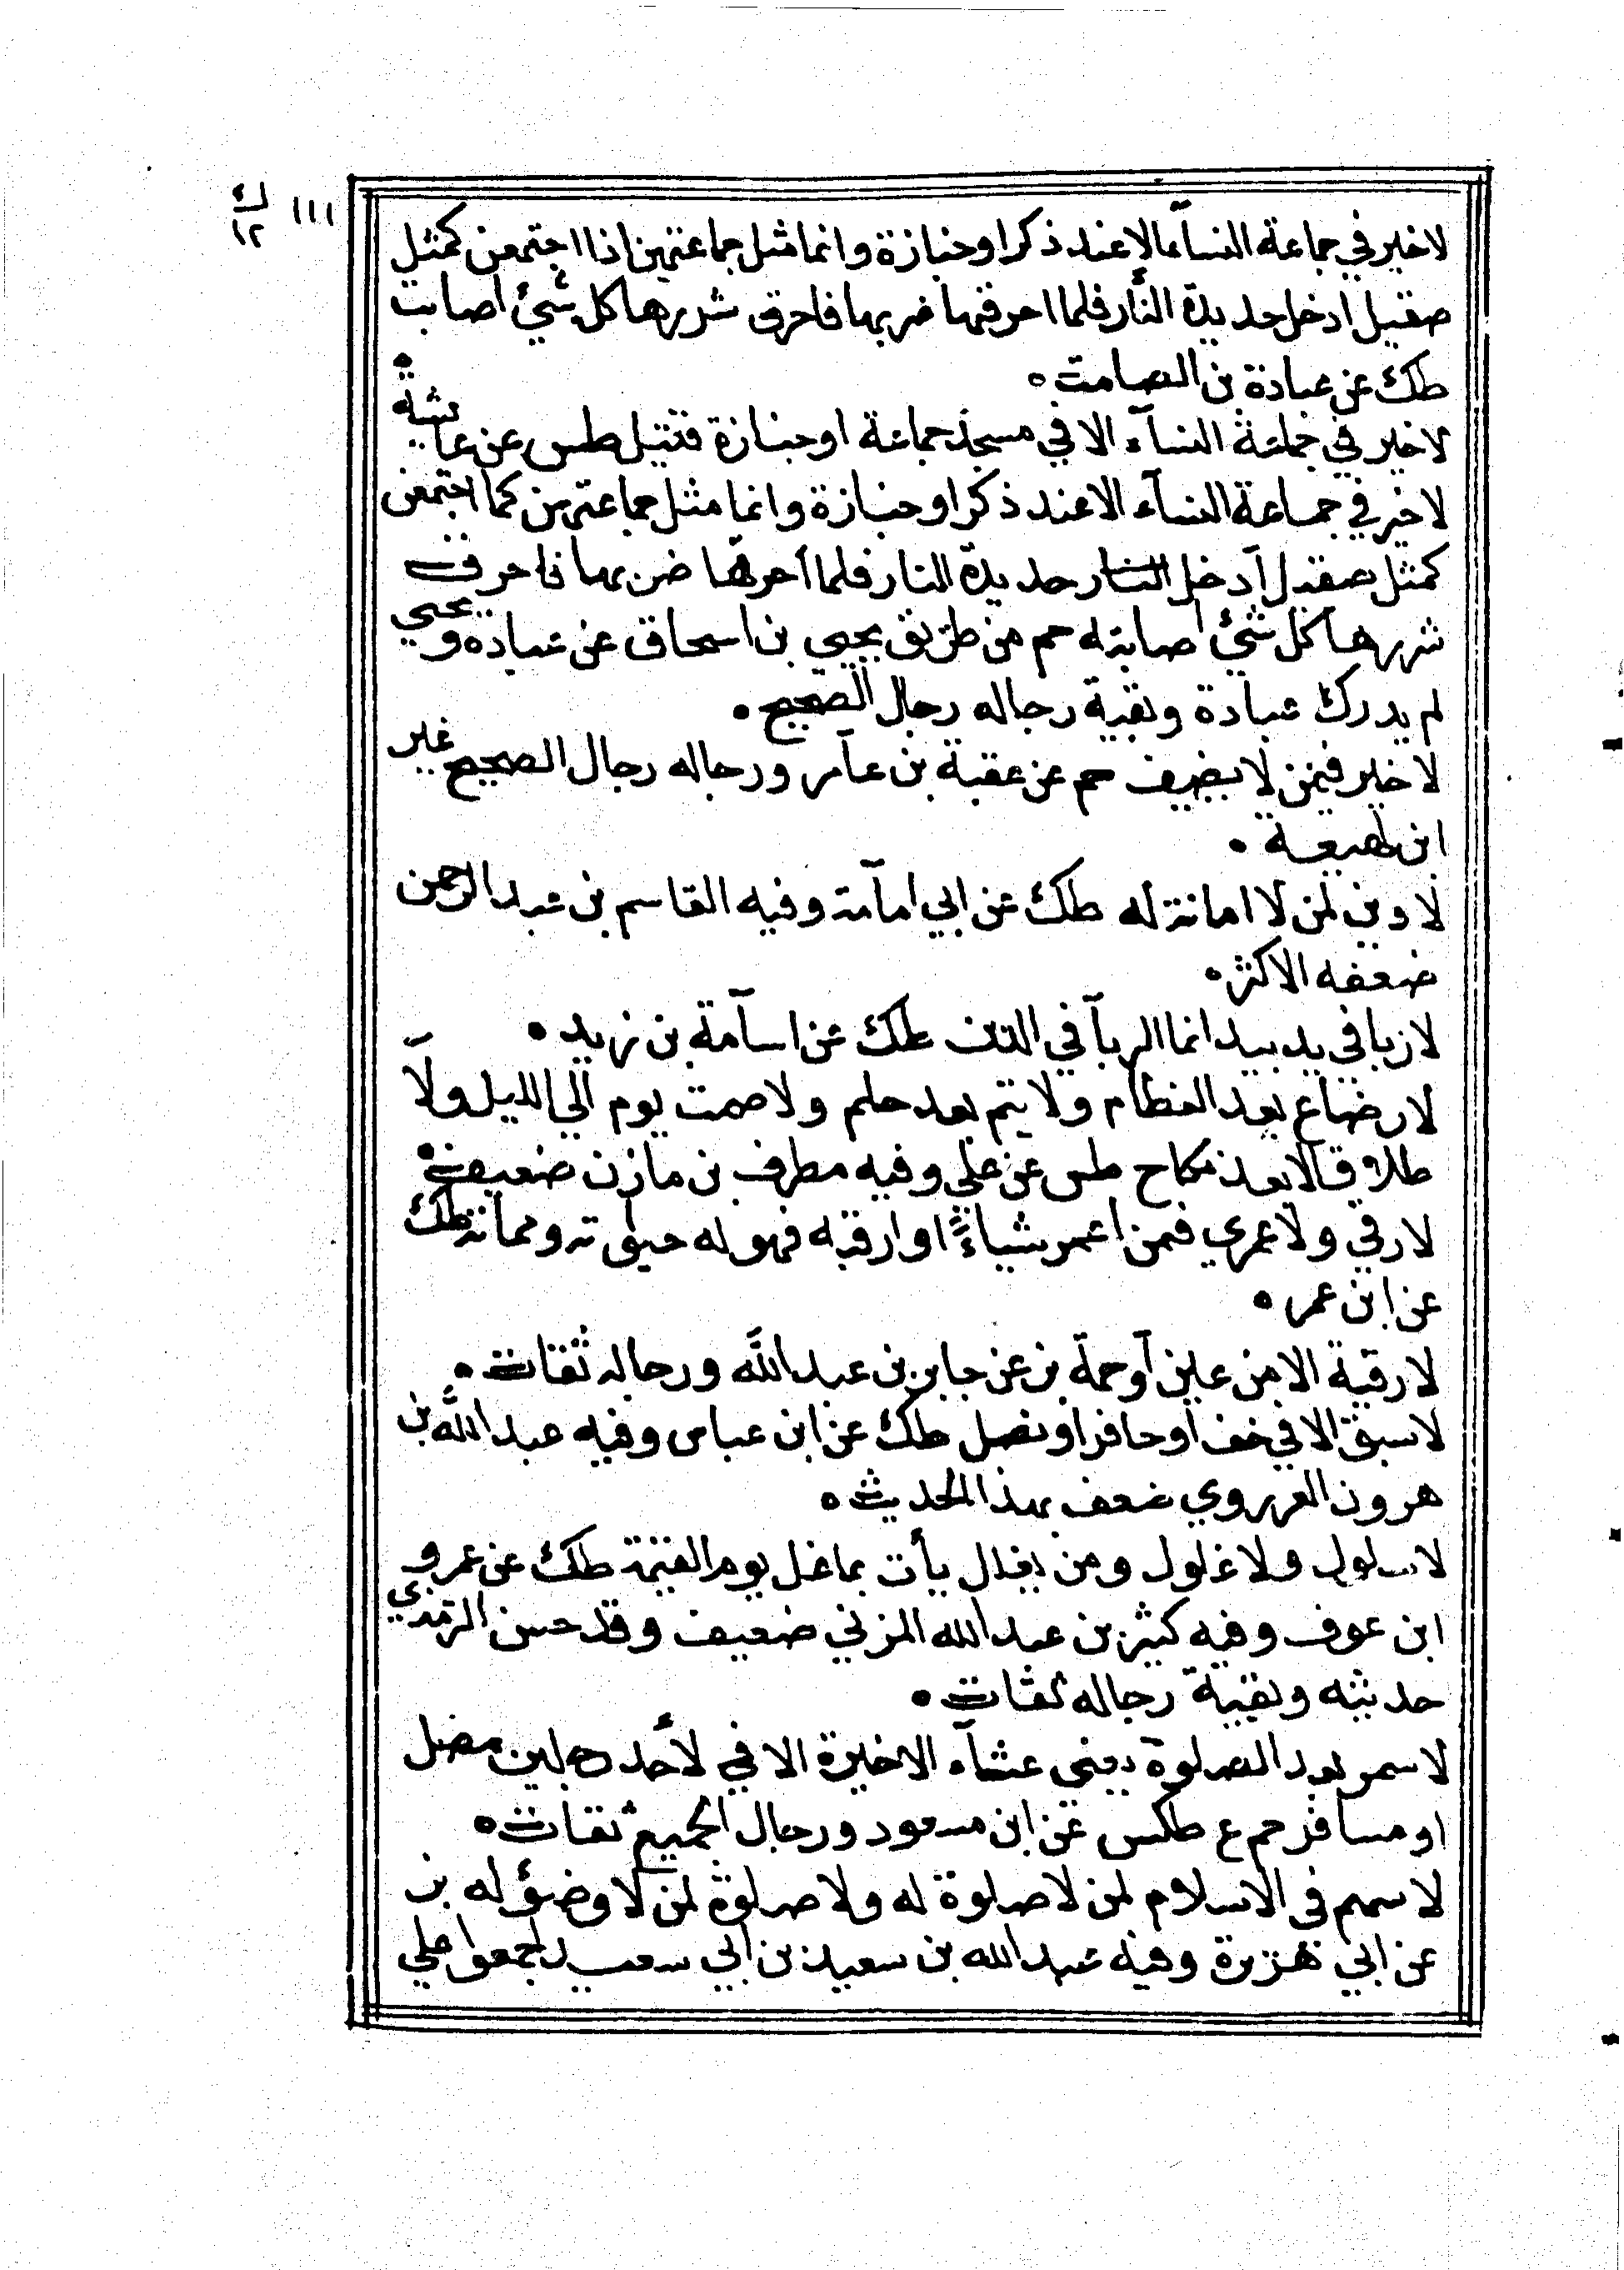 ١١١
ك
١٢
لا خير في جماعة النسآء الا عند ذكر او جنازة وانما مثل جماعتهن اذا اجتمعن كمثل
صقيل ادخل حديدة النار فلما احرقتها ضربها فاحرق شررها كل شئ اصابت
طك عن عبادة بن الصامت ٥
لا خير في جماعة النسآء الا في مسجد جماعة او جنازة قتيل طس عن عايشة
لا خير في جماعة النسآء الا عند ذكر او جنازة وانما مثل جماعتهن كما اجتمعن
كمثل صقيل ادخل النار حديدة النار فلما أحرقها ضربها فاحرقت
شررها كل شئ اصابته حم من طريق يحيى بن اسحاق عن عباده ويحيى
لم يدرك عبادة وبقية رجاله رجال الصحيح ٥
لا خير فيمن لا يضيف حم عن عقبة بن عامر ورجاله رجال الصحيح غير
ابن لهيعة ٥
لا دين لمن لا امانة له طك عن ابي امامة وفيه القاسم بن عبد الرحمن
ضعفه الاكثر ٥
لا ربا في يد بيد انما الربا في الدين طك عن اسامة بن زيد ٥
لا رضاع بعد الفطام ولا يتم بعد حلم ولا صمت يوم الي الليل ولا
طلاق الا بعد نكاح طس عن علي وفيه مطرف بن مازن ضعيف ٥
لا رقبي ولا عمري فمن اعمر شياءً او ارقبه فهو له حيوته ومماته طك
عن ابن عمر ٥
لا رقية الا من عين او حمة بز عن جابر بن عبد الله ورجاله ثقات ٥
لا سبق الا في خف او حافر او نصل طك عن ابن عباس وفيه عبد الله بن
هرون الفروي ضعف بهذا الحديث ٥
لا سلول ولا غلول ومن يغلل يأت بما غل يوم القيمة طك عن عمرو
ابن عوف وفيه كثير بن عبد الله المزني ضعيف وقد حسن الترمذي
حديثه وبقية رجاله ثقات ٥
لا سمر بعد الصلوة يعني عشآء الاخيرة الا في لأحد رجلين مصل
او مسافر حم ع طكس عن ابن مسعود ورجال الجميع ثقات ٥
لا سهم في الاسلام لمن لا صلوة له ولا صلوة لمن لا وضؤ له بز
عن ابي هريرة وفيه عبد الله بن سعيد بن ابي سعيد اجمعوا علي